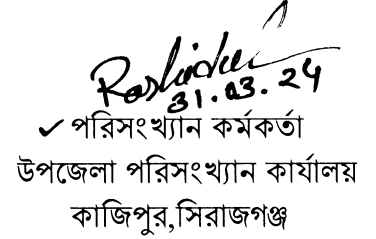 Rashidul
31.03.24
✓ পরিসংখ্যান কর্মকর্তা
উপজেলা পরিসংখ্যান কার্যালয়
কাজিপুর,সিরাজগঞ্জ